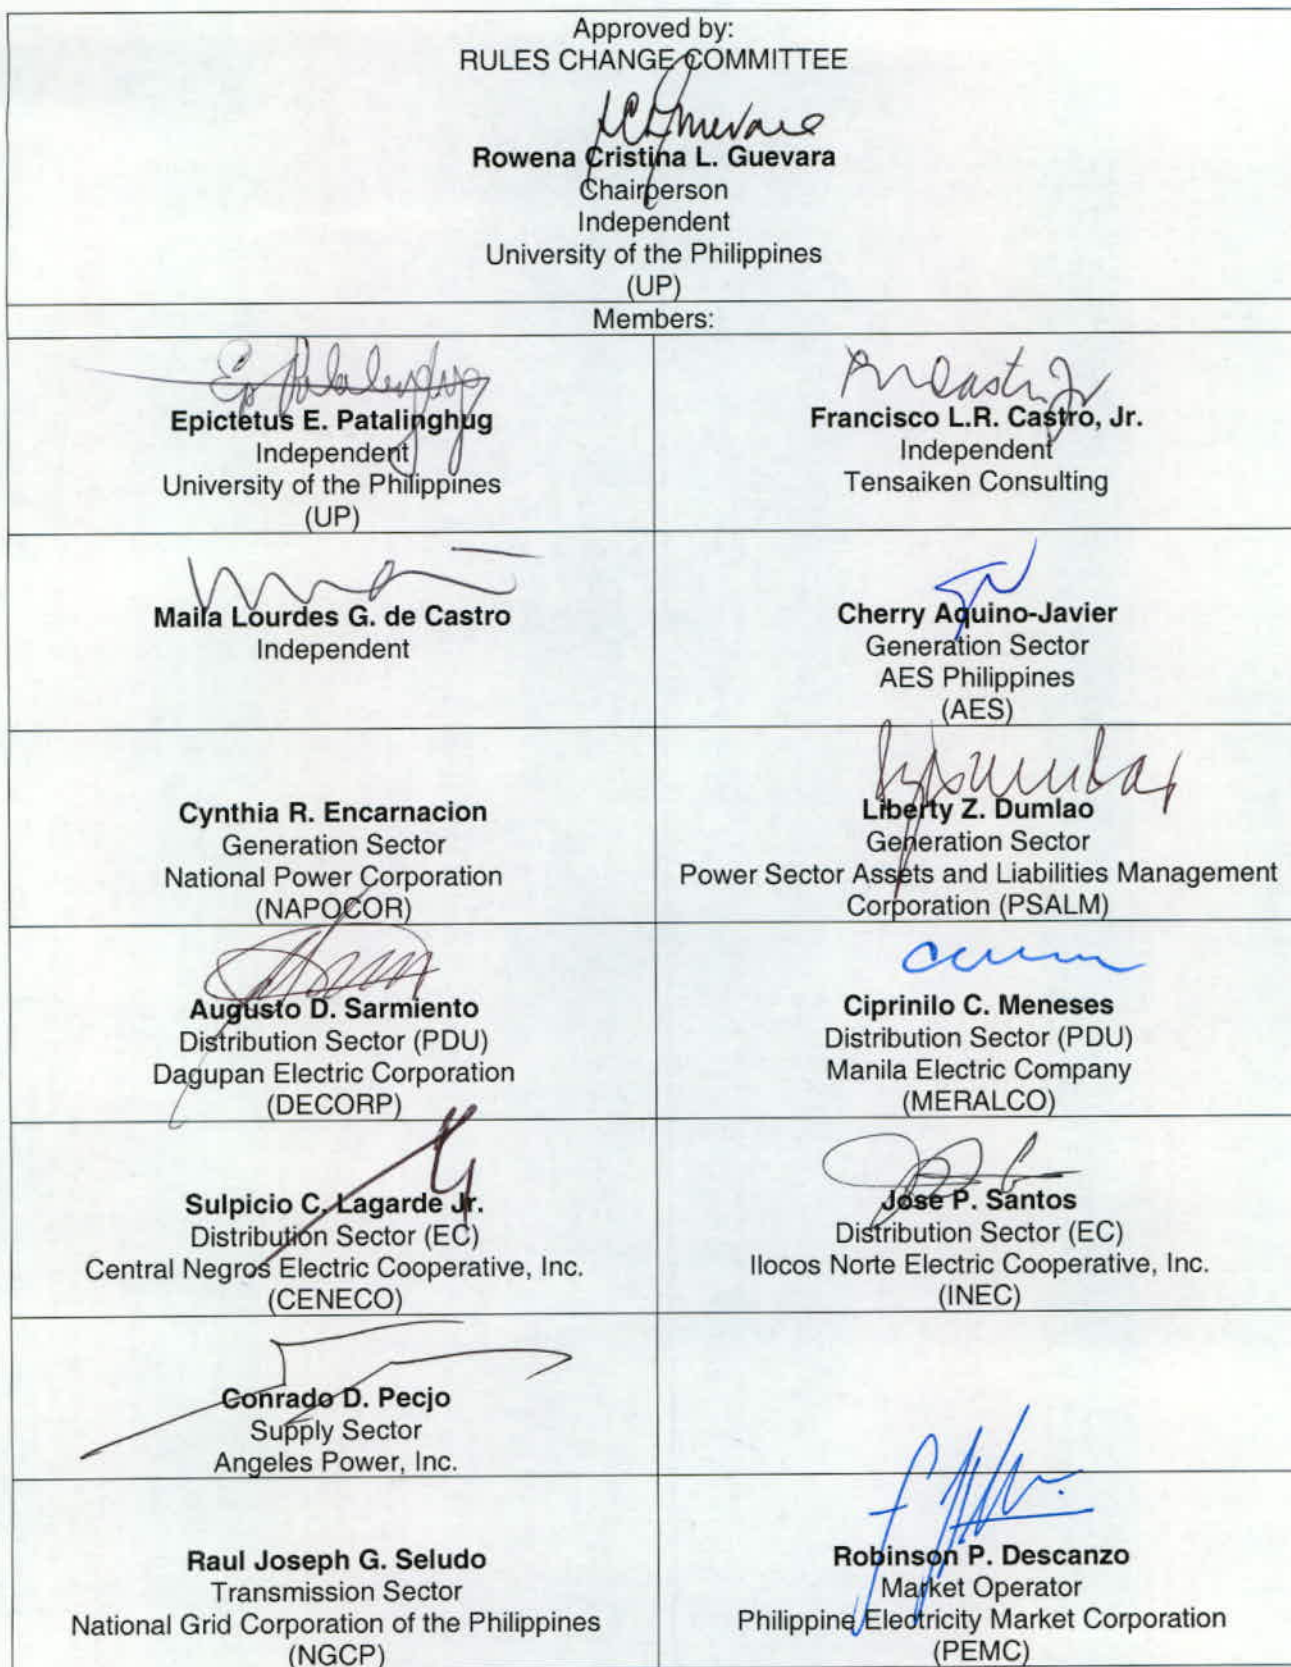 Approved by:
RULES CHANGE COMMITTEE
Rowena Cristina L. Guevara
Chairperson
Independent
University of the Philippines
(UP)
Members:
Epictetus E. Patalinghug
Independent
University of the Philippines
(UP)
Francisco L.R. Castro, Jr.
Independent
Tensaiken Consulting
Maila Lourdes G. de Castro
Independent
Cherry Aquino-Javier
Generation Sector
AES Philippines
(AES)
Cynthia R. Encarnacion
Generation Sector
National Power Corporation
(NAPOCOR)
Liberty Z. Dumlao
Generation Sector
Power Sector Assets and Liabilities Management
Corporation (PSALM)
Augusto D. Sarmiento
Distribution Sector (PDU)
Dagupan Electric Corporation
(DECORP)
Ciprinilo C. Meneses
Distribution Sector (PDU)
Manila Electric Company
(MERALCO)
Sulpicio C. Lagarde Jr.
Distribution Sector (EC)
Central Negros Electric Cooperative, Inc.
(CENECO)
Jose P. Santos
Distribution Sector (EC)
Ilocos Norte Electric Cooperative, Inc.
(INEC)
Conrado D. Pecjo
Supply Sector
Angeles Power, Inc.
Raul Joseph G. Seludo
Transmission Sector
National Grid Corporation of the Philippines
(NGCP)
Robinson P. Descanzo
Market Operator
Philippine Electricity Market Corporation
(PEMC)